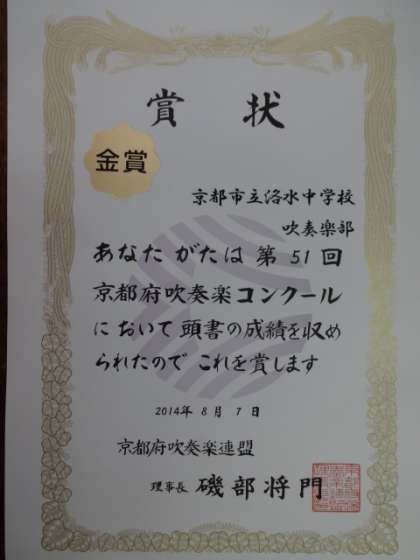 賞状
金賞
京都市立洛水中学校
吹奏楽部
あなたがたは第51回
京都府吹奏楽コンクール
において頭書の成績を収め
られたのでこれを賞します
2014年8月7日
京都府吹奏楽連盟
理事長 磯部将門